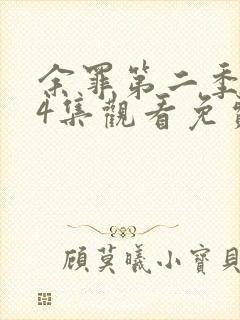 余罪第二季
4集觀看免費
顧莫曦小寶貝